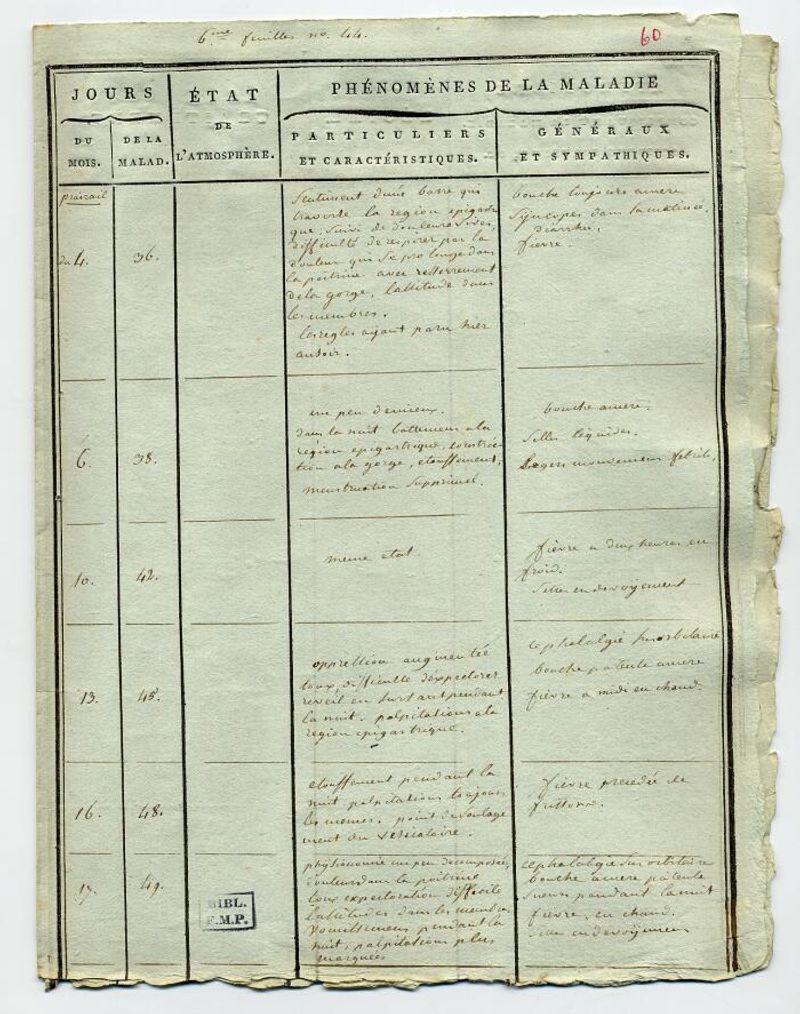 6.me feuilles no. 44.
60
JOURS
DU MOIS.
DE LA MALAD.
ÉTAT
DE
L'ATMOSPHÈRE.
PHÉNOMÈNES DE LA MALADIE
PARTICULIERS
ET CARACTÉRISTIQUES.
GÉNÉRAUX
ET SYMPATHIQUES.
prairial
du 4.
36.
Sentiment d'une barre qui
traverse la region epigastri
que, suivi de douleurs vives,
difficulté de respirer par la
douleur qui se prolonge dans
la poitrine avec resserrement
de la gorge, lassitude dans
les membres.
les regles ayant paru hier
au soir.
bouche toujours amere
Syncopes dans la matinée.
diarrhée,
fievre.
6.
38.
un peu de mieux.
dans la nuit battemens a la
région epigastrique, constric
tion a la gorge, etouffement,
menstruation supprimée.
bouche amere.
Selles liquides.
Legers mouvemens febriles,
10.
42.
meme etat
fievre a deux heures en
froid.
Selles en devoyement
13.
45.
oppression augmentée
toux, difficulté d'expectorer
reveil en sursaut pendant
la nuit. palpitations a la
region epigastrique.
cephalalgie susorbitaire
bouche pateuse amere
fievre a midi en chaud.
16.
48.
etouffement pendant la
nuit palpitations toujours
les memes. point de soulage
ment du vesicatoire.
fievre precedée de
frissons.
17.
49.
physionomie un peu decomposée,
douleurs dans la poitrine
toux expectoration difficile
lassitudes dans les membres
vomissemens pendant la
nuit, palpitations plus
marquées
cephalalgie sus orbitaire
bouche amere pateuse
sueurs pendant la nuit
fievre, en chaud.
Selles en devoyement
BIBL.
F.M.P.